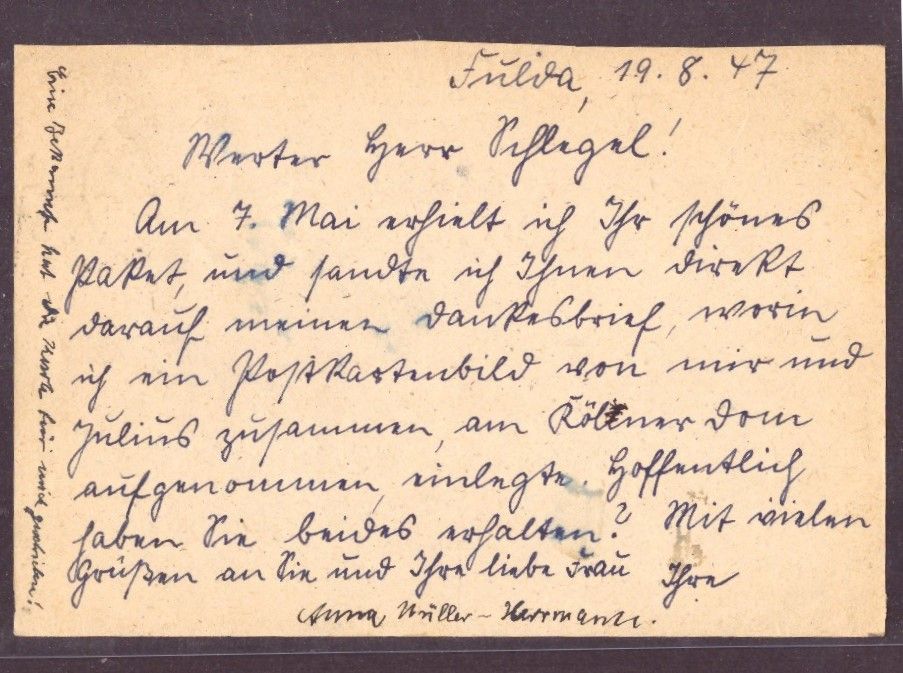 Fulda, 19. 8. 47
Werter Herr Schlegel!
Am 7. Mai erhielt ich Ihr schönes
Paket, und sandte ich Ihnen direkt
darauf meinen Dankesbrief, worin
ich ein Postkartenbild von mir und
Julius zusammen, am Kölner Dom
aufgenommen, einlegte. Hoffentlich
haben Sie beides erhalten? Mit vielen
Grüßen an Sie und Ihre liebe Frau Ihre
Anna Müller-Herrmann.
Eine Bekannte hat die Karte für mich geschrieben!